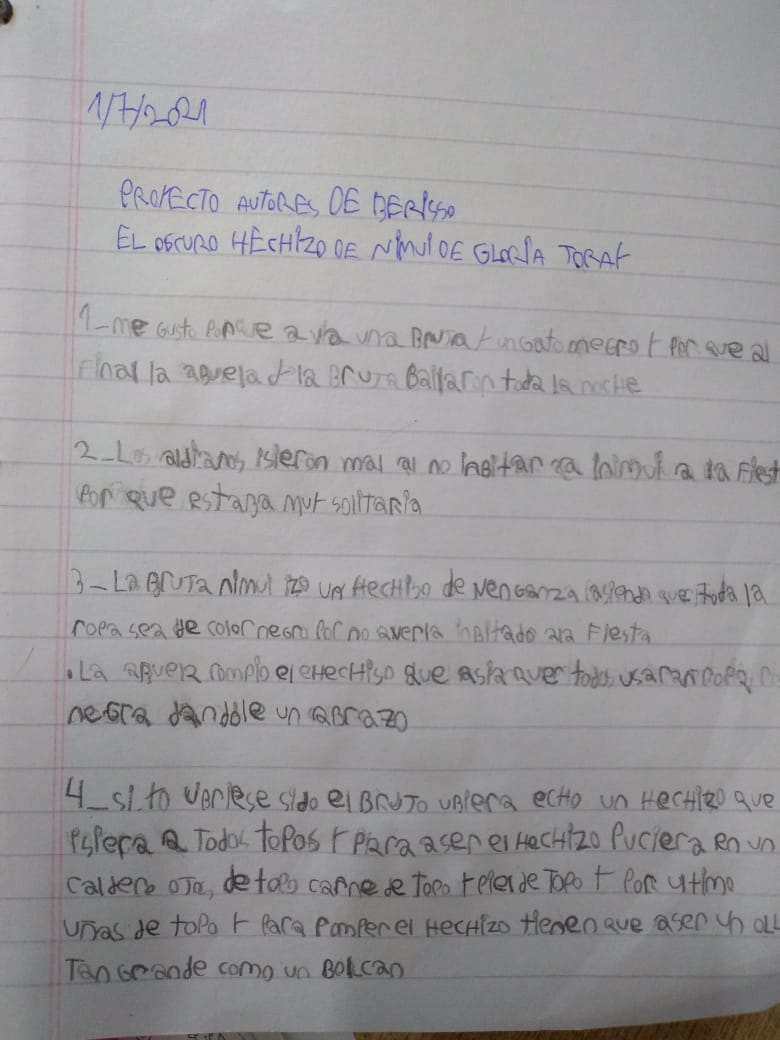 1/7/2021
PROYECTO AUTORES DE BERISSO
EL OSCURO HECHIZO DE NIMUI DE GLORIA
1-me gusto porque avia una BRUJA y un gato negro y por que al
Final la aBuela y la BRUJA Baylaron toda la nocHe
2-Los aldianos isieron mal al no inbitar a a la Fiest
Por que estaBa muy solitaria
3-La BRUJA nimui izo un HecHiso de venganza asiendo que toda la
ropa sea de color negro Por no averla inbitado ala Fiesta
.La aBuela rompio el eHecHiso que asia que todos usaran ropa
negra dandole un aBrazo
4-si yo uBriese sido el BRUJO uBiera ecHo un HecHizo que
a Todos topos y Para aser el HecHizo Puciera en un
caldero oja, de topo carne de Topo y piel de Topo y Por utimo
uñas de topo y Para romper el HecHizo tienen que aser un
Tan grande como un Bolcan